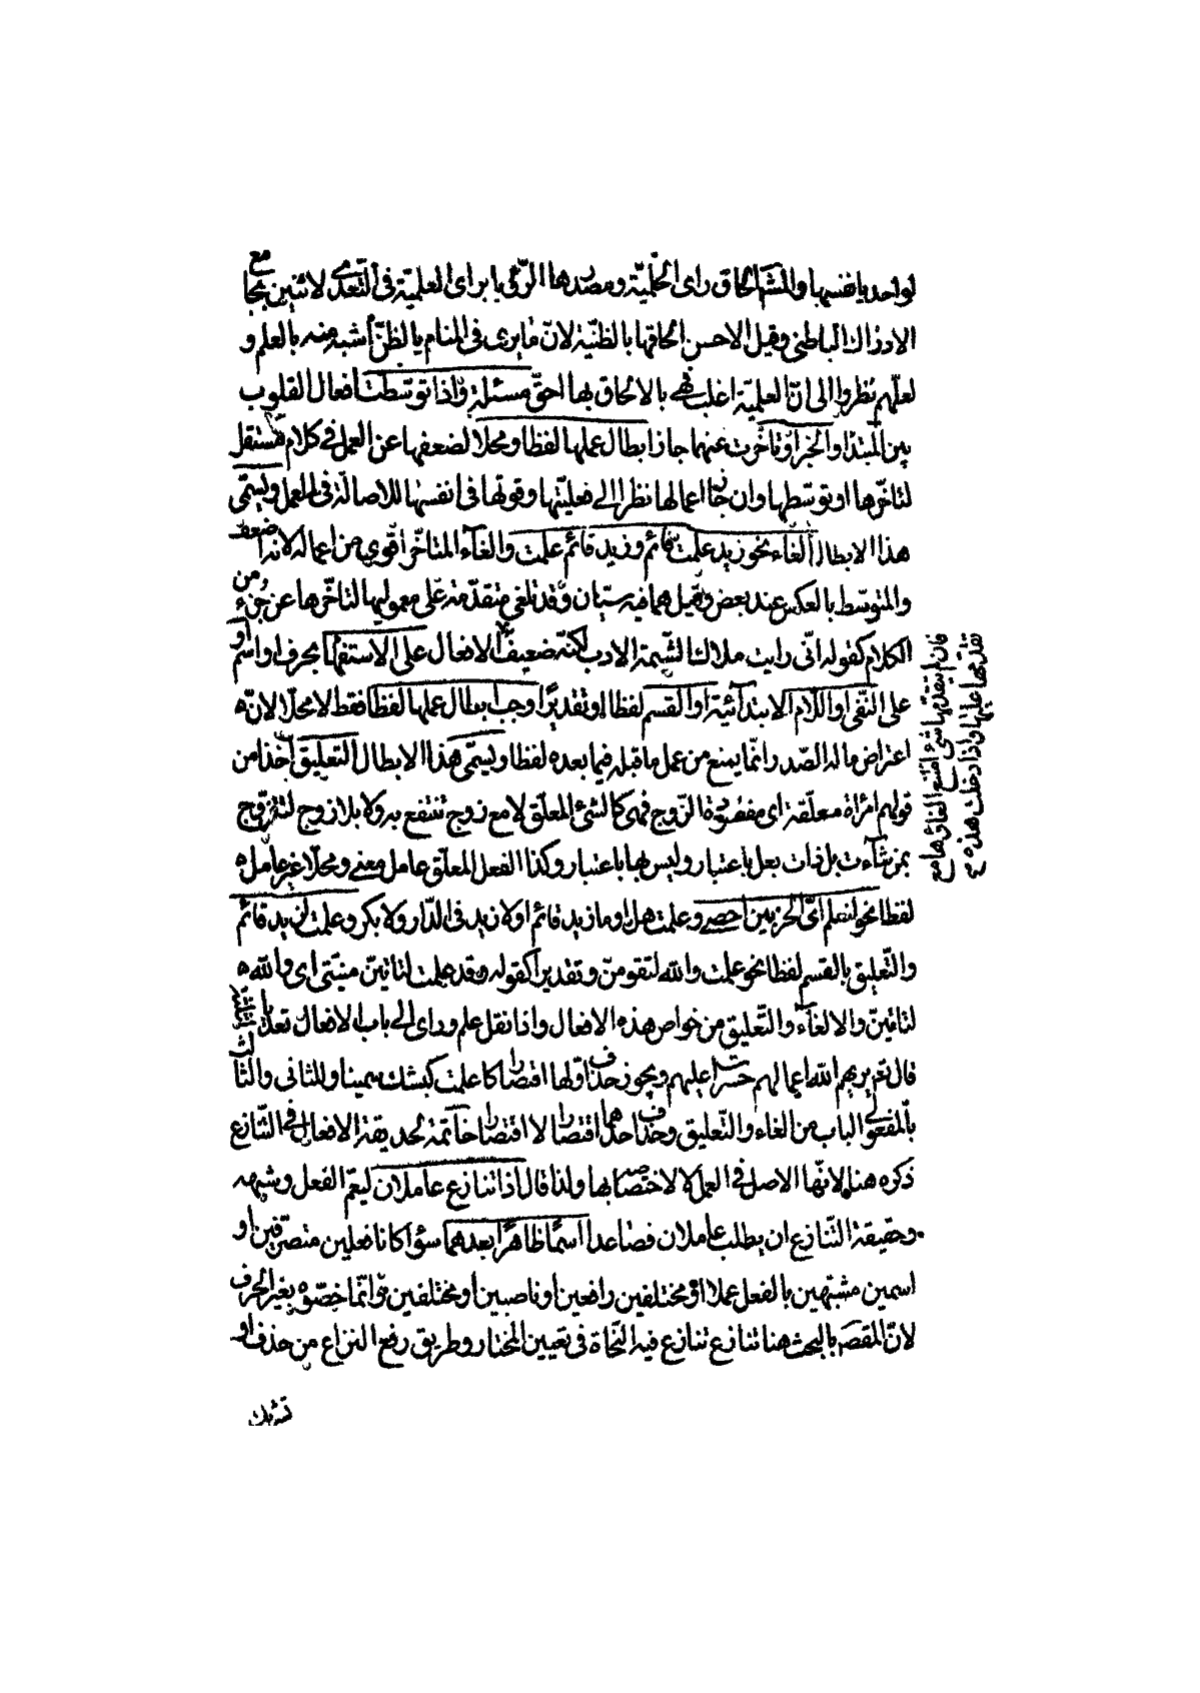 لواحد بانفسها والمشهور الحاق رأى الحلمية ومصدرها الرؤيا برأى العلمية فى التعدى لاثنين بجامع
الادراك الباطنى وقيل الاحسن الحاقها بالظنية لانّ ما يرى فى المنام بالظنّ أشبه منه بالعلم و
لعلّهم نظروا الى انّ العلميّة اغلب فهى بالالحاق بها احقّ مسئلة واذا توسّطت افعال القلوب
بين المبتدا والخبر او تاخّرت عنهما جاز ابطال عملها لفظا ومحلا لضعفها عن العمل فى كلام مستقل
لتاخّرها او توسّطها وان جاز اعمالها نظرا الى فعليّتها وقوتها فى انفسها للاصالة فى العمل ويسمّى
هذا الابطال الغاء نحو زيد علمت قائم وزيد قائم علمت والغاء المتاخّر اقوى من اعماله لانه اضعف
والمتوسّط بالعكس عند بعض وقيل هما فيه سيّان وقد تلغى متقدّمة على معموليها لتاخّرها عن جزء من
الكلام كقوله انّى رايت ملاك الشّيمة الادب لكنّه ضعيف الافعال على الاستفهام بحرف او اسم او
على النّفى او اللّام الابتدائيّة او القسم لفظا او تقديرًا وجب ابطال عملها لفظا فقط لا محلّا لانّه
اعتراض ما له الصّدر انّما يمنع من عمل ما قبله فيما بعده لفظا ويسمّى هذا الابطال التعليق اخذا من
قولهم امراة معلّقة اى مفقودة الزّوج فهى كالشئ المعلّق لا مع زوج تنتفع به ولا بلا زوج لتتزوّج
بمن شاءت بل ذات بعل باعتبار وليس بها باعتبار وكذا الفعل المعلّق عامل معنى ومحلّا غير عامل
لفظا نحو لنعلم اىّ الحزبين احصى وعلمت هل او ما زيد قائم او لا زيد فى الدّار ولا بكر وعلمت لزيد قائم
والتّعليق بالقسم لفظا نحو علمت والله لتقومنّ وتقديرا كقوله ولقد علمت لتاتينّ منيّتى اى والله
لتاتينّ والالغاء والتّعليق من خواص هذه الافعال واذا نقل علم وراى الى باب الافعال تعدّيا لثلثة
قال تع يريهم الله اعمالهم حسرات عليهم ويجوز حذف اولها اقتصارا كاعلمت كبشك سمينا وللثانى والثالث
بالمفعولى الباب من الغاء والتّعليق وحذف احدهما اقتصارا لا اقتصارا خاتمة لحديقة الافعال فى التّنازع
ذكره هنا لانّها الاصل فى العمل لا لاختصاصه بها ولذا قال اذا تنازع عاملان ليعمّ الفعل وشبهه
وحقيقة التّنازع ان يطلب عاملان فصاعدا اسمًا ظاهرًا بعدهما سواء كانا فعلين متصرّفين او
اسمين مشبهين بالفعل عملا او مختلفين رافعين او ناصبين او مختلفين وانّما خصّوه بغير الحرف
لانّ المقصود بالبحث هنا تنازع تنازع فيه النّحاة فى تعيين المختار وطريق رفع النزاع من حذف او
تشريك
فان لم يتقدمها شئ امتنع الغاؤها مع
تقدّمها عليها واذا دخلت هذه